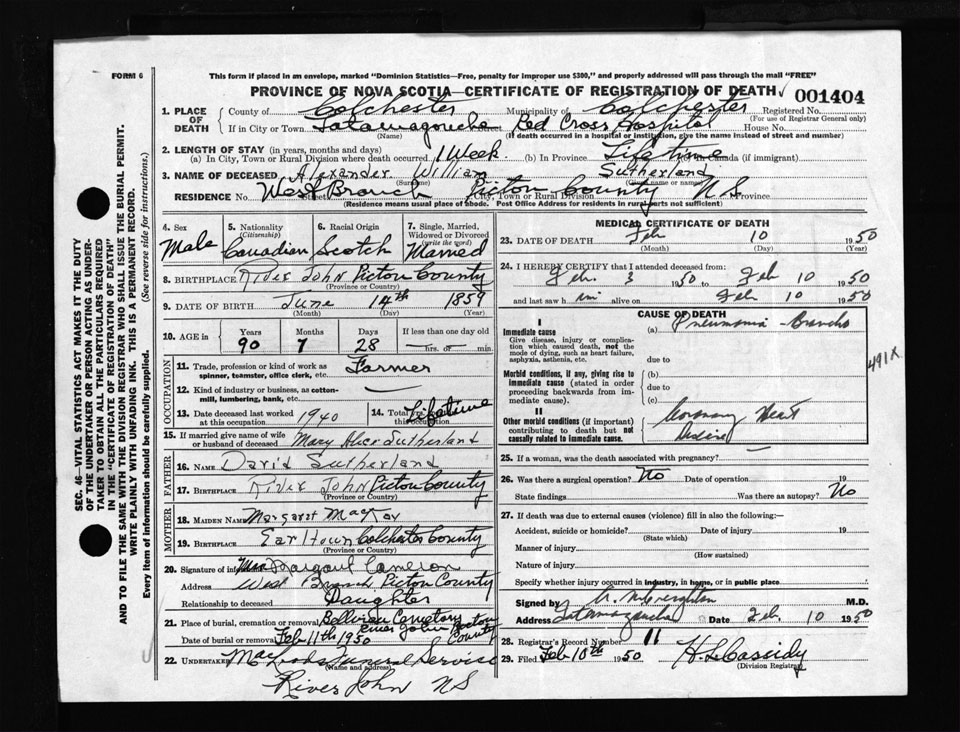 FORM 6
This form if placed in an envelope, marked "Dominion Statistics—Free, penalty for improper use $300," and properly addressed will pass through the mail "FREE"
PROVINCE OF NOVA SCOTIA—CERTIFICATE OF REGISTRATION OF DEATH
001404
1. PLACE OF DEATH
County of Colchester Municipality of Colchester Registered No.
(For use of Registrar General only)
If in City or Town Tatamagouche Street Red Cross Hospital House No.
(Name) (If death occurred in a hospital or institution, give the name instead of street and number)
2. LENGTH OF STAY (in years, months and days)
(a) In City, Town or Rural Division where death occurred 1 Week. (b) In Province Lifetime Canada (if immigrant)
3. NAME OF DECEASED Alexander William Sutherland
(Surname) (Given name or names)
RESIDENCE No. West Branch Street Pictou County City, Town or Rural Division N S Province
(Residence means usual place of abode. Post Office Address for residents in rural parts not sufficient)
SEC. 46—VITAL STATISTICS ACT MAKES IT THE DUTY
OF THE UNDERTAKER OR PERSON ACTING AS UNDER-
TAKER TO OBTAIN ALL THE PARTICULARS REQUIRED
IN THE "CERTIFICATE OF REGISTRATION OF DEATH"
AND TO FILE THE SAME WITH THE DIVISION REGISTRAR WHO SHALL ISSUE THE BURIAL PERMIT.
WRITE PLAINLY WITH UNFADING INK. THIS IS A PERMANENT RECORD.
Every item of information should be carefully supplied. (See reverse side for instructions.)
4. Sex Male
5. Nationality (Citizenship) Canadian
6. Racial Origin Scotch
7. Single, Married, Widowed or Divorced (write the word) Married
8. BIRTHPLACE River John Pictou County
(Province or Country)
9. DATE OF BIRTH June 14th 1859
(Month) (Day) (Year)
10. AGE in Years 90 Months 7 Days 28 If less than one day
hrs. or min.
OCCUPATION
11. Trade, profession or kind of work as spinner, teamster, office clerk, etc. Farmer
12. Kind of industry or business, as cotton-mill, lumbering, bank, etc. —
13. Date deceased last worked at this occupation 1940
14. Total Yrs. this occupation Lifetime
15. If married give name of wife or husband of deceased Mary Alice Sutherland
FATHER
16. NAME David Sutherland
17. BIRTHPLACE River John Pictou County
(Province or Country)
MOTHER
18. MAIDEN NAME Margaret
19. BIRTHPLACE Earltown Colchester County
(Province or Country)
20. Signature of informant Mrs Margaret Cameron
Address West Branch, Pictou County
Relationship to deceased Daughter
21. Place of burial, cremation or removal Cemetery River John Pictou County
Date of burial or removal Feb 11th 1950
22. UNDERTAKER Funeral Service
(Name and address)
River John NS
MEDICAL CERTIFICATE OF DEATH
23. DATE OF DEATH Feb 10 1950
(Month) (Day)
24. I HEREBY CERTIFY that I attended deceased from:
Feb. 3 1950 to Feb 10 1950
and last saw him alive on Feb 10 1950
CAUSE OF DEATH
I
Immediate cause
Give disease, injury or complication which caused death, not the mode of dying, such as heart failure, asphyxia, asthenia, etc.
(a) Pneumonia - Broncho
due to
491X
Morbid conditions, if any, giving rise to immediate cause (stated in order proceeding backwards from immediate cause).
(b)
due to
(c)
II
Other morbid conditions (if important) contributing to death but not causally related to immediate cause.
Coronary Heart
Disease
25. If a woman, was the death associated with pregnancy?
26. Was there a surgical operation? No Date of operation 19
State findings Was there an autopsy? No
27. If death was due to external causes (violence) fill in also the following:—
Accident, suicide or homicide? Date of injury 19
(State which)
Manner of injury
(How sustained)
Nature of injury
Specify whether injury occurred in industry, in home, or in public place
Signed by M.D.
Address Tatamagouche Date Feb. 10 1950
28. Registrar's Record Number 11
29. Filed Feb 10th 1950 H L Cassidy
(Division Registrar)